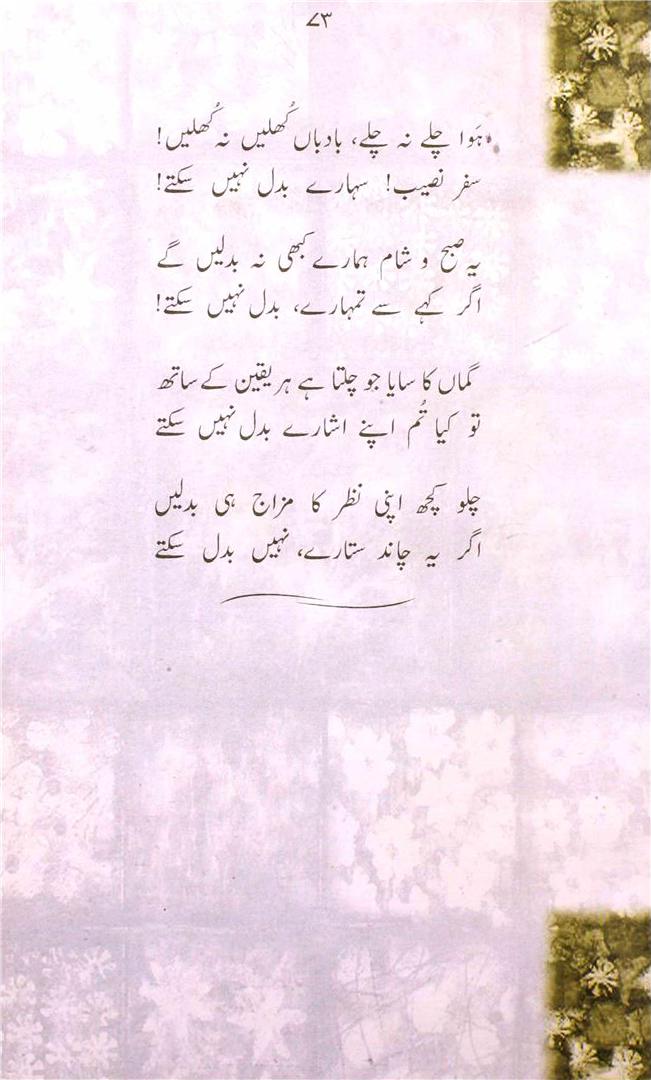 ۷۳
ہَوا چلے نہ چلے، بادباں کُھلیں نہ کُھلیں!
سفر نصیب! سہارے بدل نہیں سکتے!
یہ صبح و شام ہمارے کبھی نہ بدلیں گے
اگر کہے سے تمہارے، بدل نہیں سکتے!
گماں کا سایا جو چلتا ہے ہر یقین کے ساتھ
تو کیا تُم اپنے اشارے بدل نہیں سکتے
چلو کچھ اپنی نظر کا مزاج ہی بدلیں
اگر یہ چاند ستارے، نہیں بدل سکتے